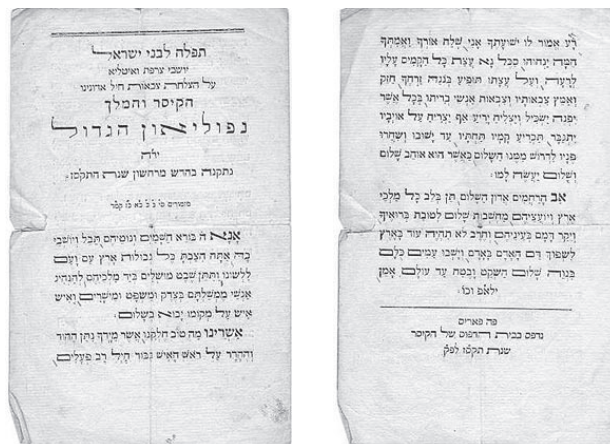 תפלה לבני ישראל
יושבי צרפת ואיטליא
על הצלחת צבאות חיל אדונינו
הקיסר והמלך
נפוליאון הגדול
יר״ה
נתקנה בחדש מרחשון שנת התקסו
מזמורים
אנא ה׳ בורא השמים ונוטיהם תבל ויושבי
בה אתה הצבת כל גבולות ארץ עם ועם
ללשונו ותתן שבט מושלים ביד מלכיהם להנהיג
אנשי ממשלתם בצדק ומשפט ומישרים ואיש
איש על מקומו יבוא בשלום:
אשרינו מה טוב חלקנו אשר מידך נתן ההוד
וההדר על ראש האיש גבור חיל רב פעלים
אמור לו ישועתך אני שלח אורך ואמתך
המה ינחוהו סכל נא עצת כל הקמים עליו
לרעה ועל עצתו תופיע בנגה זרחך חזק
ואמץ צבאותיו וצבאות אנשי בריתו בכל אשר
יפנה ישכיל ויצליח יריע אף יצריח על אויביו
יתגבר תכריע קמיו תחתיו עד ישובו ושחרו
פניו לדרוש ממנו השלום כאשר הוא אוהב שלום
ושלום יעשה למו:
אב הרחמים אדון השלום תן בלב כל מלכי
ארץ ויועציהם מחשבות שלום לטובת ברואיך
ויקר דמם בעיניהם וחרב לא תהיה עוד בארץ
לשפוך דם האדם באדם וישבו עמים כלם
בנוה שלום השקט ובטח עד עולם אמן
פה פאריס
נדפס בבית הדפוס של הקיסר
שנת תקסו לפק